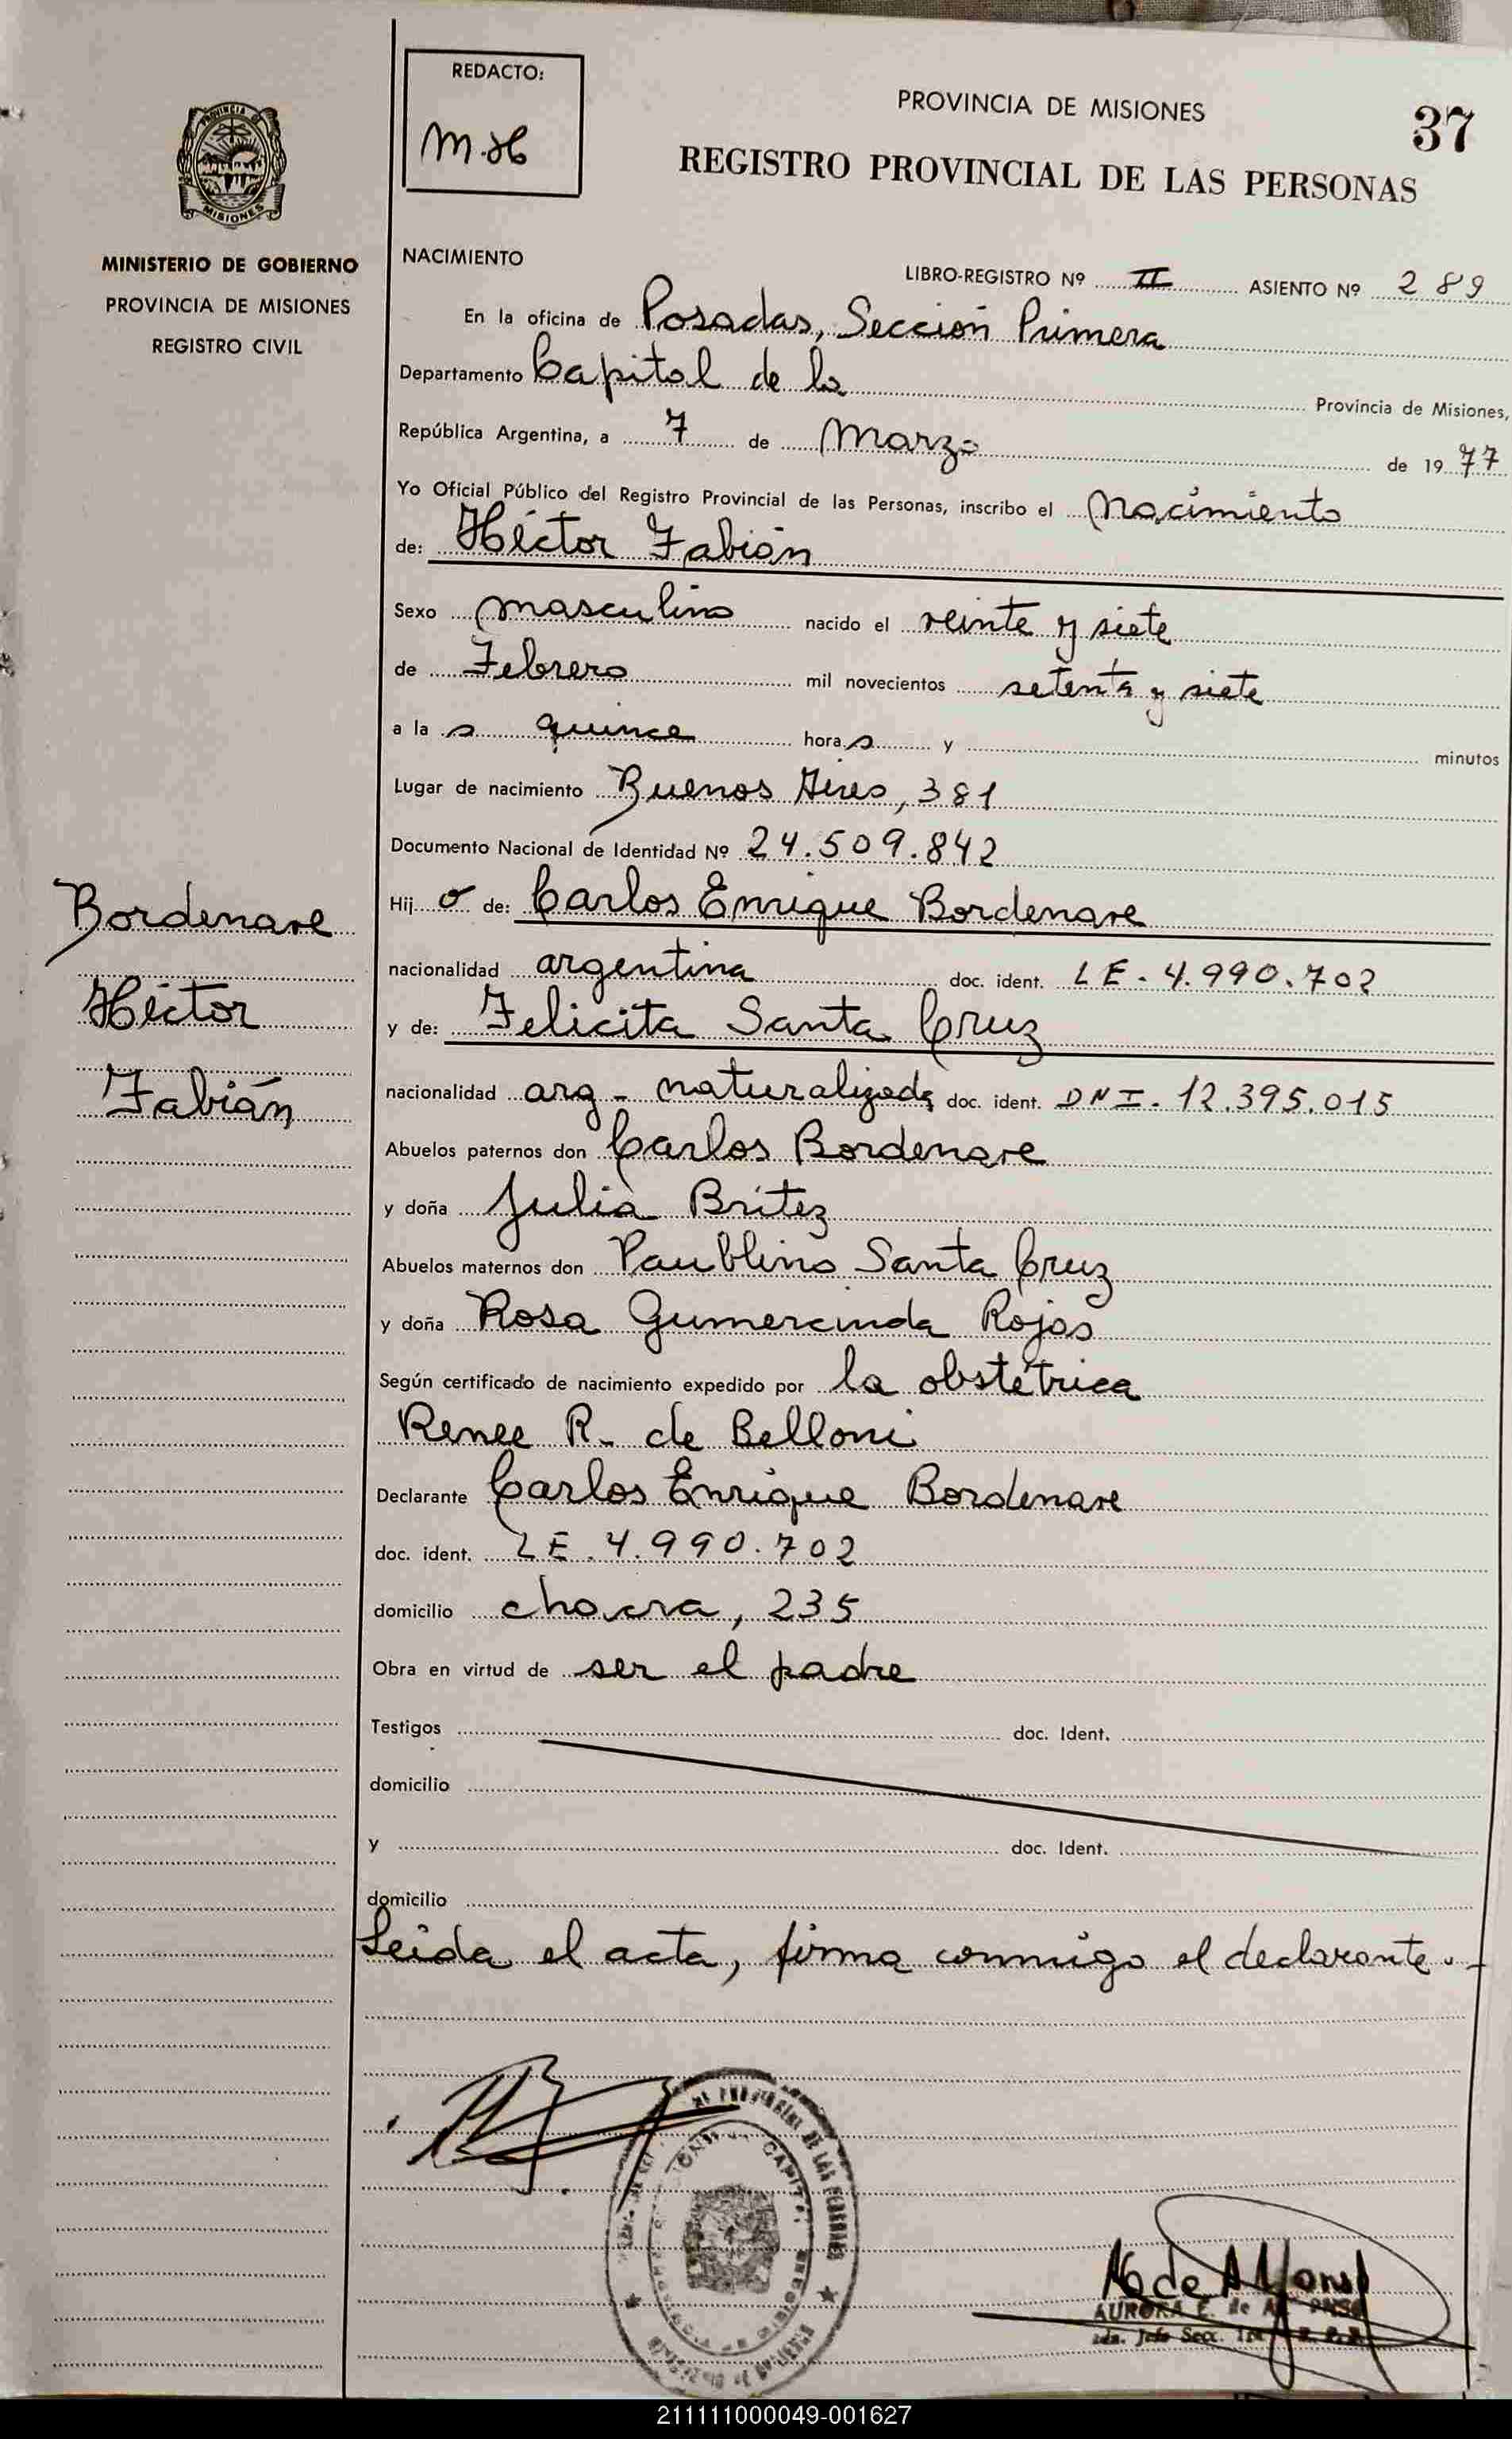 REDACTO:
M.H
PROVINCIA DE MISIONES
37
REGISTRO PROVINCIAL DE LAS PERSONAS
PROVINCIA DE
MISIONES
MINISTERIO DE GOBIERNO
PROVINCIA DE MISIONES
REGISTRO CIVIL
NACIMIENTO
LIBRO-REGISTRO Nº II ASIENTO Nº 289
En la oficina de Posadas, Sección Primera
Departamento Capital de la Provincia de Misiones,
República Argentina, a 7 de Marzo de 1977
Yo Oficial Público del Registro Provincial de las Personas, inscribo el Nacimiento
de: Héctor Fabián
Sexo masculino nacido el veinte y siete
de Febrero mil novecientos setenta y siete
a la s quince hora s y minutos
Lugar de nacimiento Buenos Aires, 381
Documento Nacional de Identidad Nº 24.509.842
Hij o de: Carlos Enrique Bordenave
nacionalidad argentina doc. ident. LE. 4.990.702
y de: Felicita Santa Cruz
nacionalidad arg - naturalizada doc. ident. DNI. 12.395.015
Abuelos paternos don Carlos Bordenave
y doña Julia Britez
Abuelos maternos don Paublino Santa Cruz
y doña Rosa Gumercinda Rojas
Según certificado de nacimiento expedido por la obstétrica
Renee R. de Belloni
Declarante Carlos Enrique Bordenave
doc. ident. LE. 4.990.702
domicilio chacra, 235
Obra en virtud de ser el padre
Testigos doc. Ident.
domicilio
y doc. Ident.
domicilio
Leida el acta, firma conmigo el declarante.-
Bordenave
Héctor
Fabián
PROVINCIAL DE LAS PERSONAS
CAPITAL
AURORA E. de
211111000049-001627